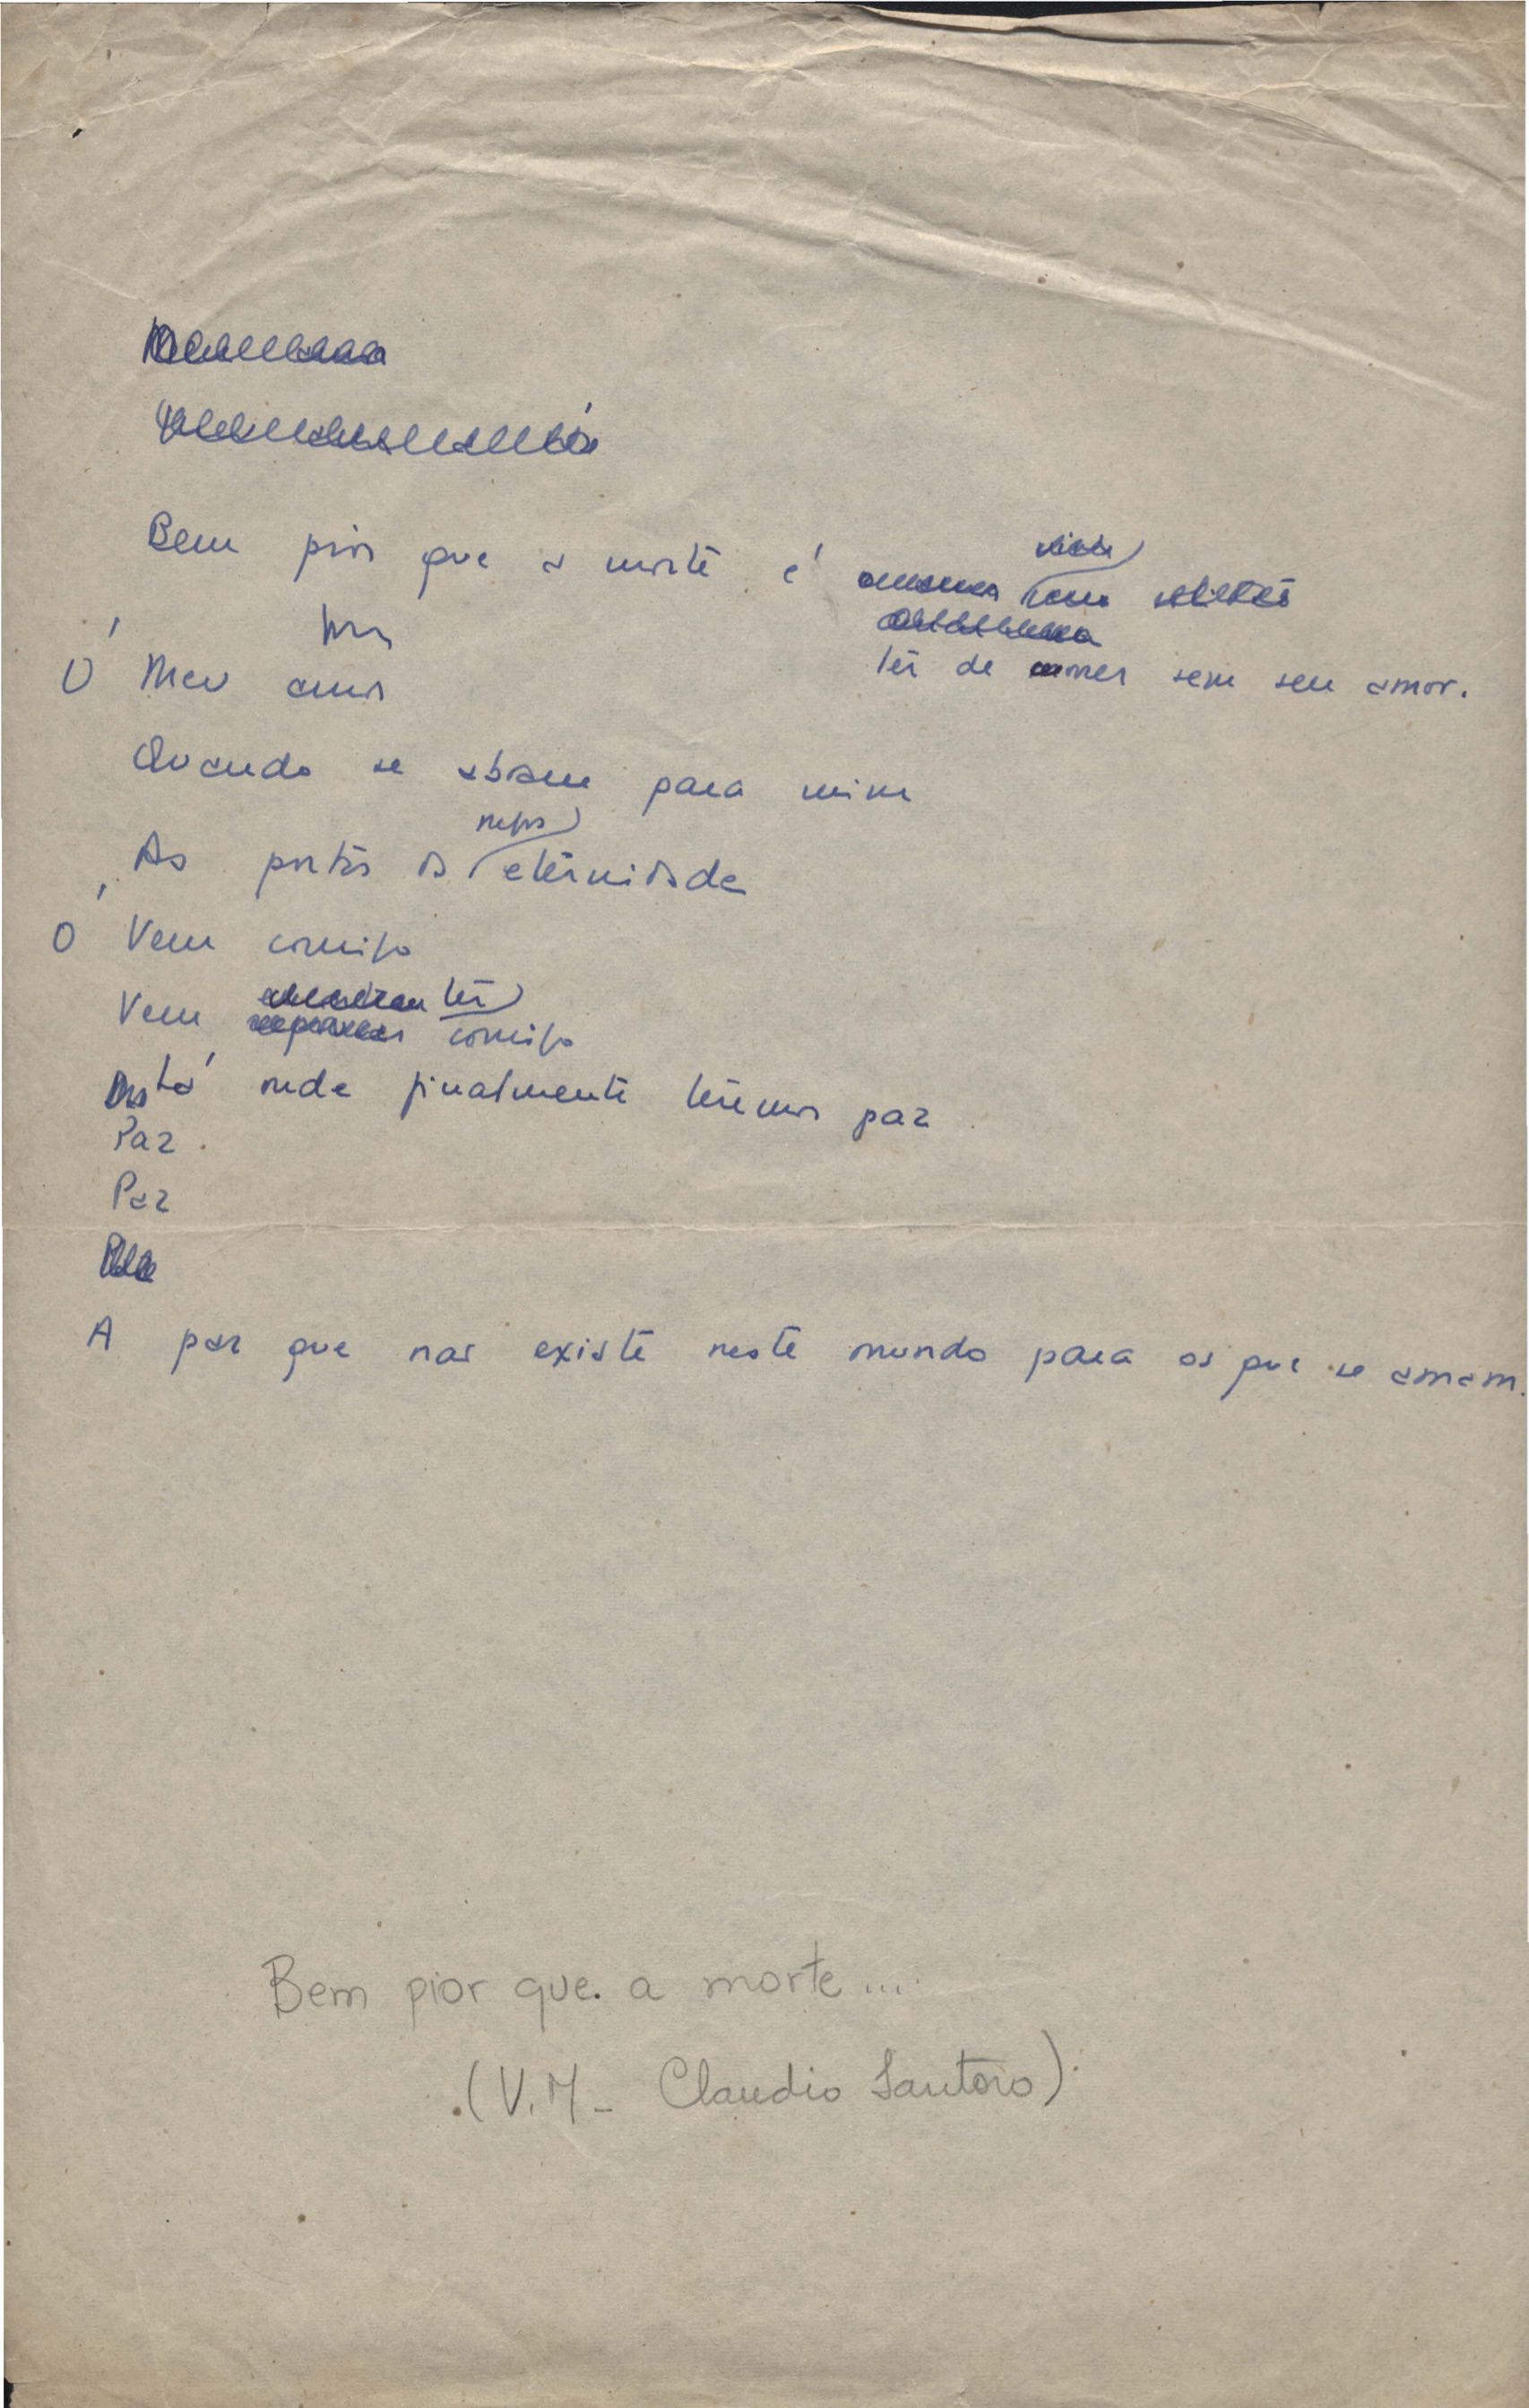 Bem pior que a morte é
ter de morrer sem seu amor.
Ó Meu amor
Quando se abrem para mim
negros
As portas da eternidade
Ó Vem comigo
Vem comigo
Lá onde finalmente teremos paz
Paz.
Paz
A paz que nas existe neste mundo para os que se amam.
Bem pior que a morte....
(V.M - Claudio Santoro)